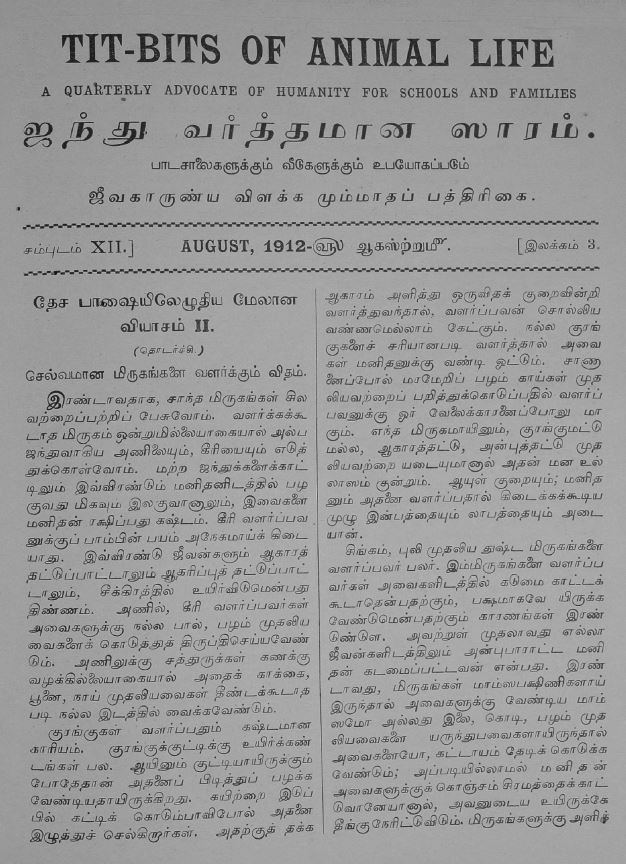 TIT-BITS OF ANIMAL LIFE
A QUARTERLY ADVOCATE OF HUMANITY FOR SCHOOLS AND FAMILIES
ஜந்து வர்த்தமான ஸாரம்.
பாடசாலைகளுக்கும் வீடுகளுக்கும் உபயோகப்படும்
ஜீவகாருண்ய விளக்க மும்மாதப் பத்திரிகை.
சம்புடம் XII.]
AUGUST, 1912-௵ ஆகஸ்ற்றுமீ௴.
[இலக்கம் 3.
தேச பாஷையிலெழுதிய மேலான
வியாசம் II.
(தொடர்ச்சி.)
செல்வமான மிருகங்களை வளர்க்கும் விதம்.
இரண்டாவதாக, சாந்த மிருகங்கள் சில
வற்றைப்பற்றிப் பேசுவோம். வளர்க்கக்கூ
டாத மிருகம் ஒன்றுமில்லையாகையால் அல்ப
ஜந்துவாகிய அணிலையும், கீரியையும் எடுத்
துக்கொள்வோம். மற்ற ஜந்துக்களைக்காட்
டிலும் இவ்விரண்டும் மனிதனிடத்தில் பழ
குவது மிகவும் இலகுவானாலும், இவைகளை
மனிதன் ரக்ஷிப்பது கஷ்டம். கீரி வளர்ப்பவ
னுக்குப் பாம்பின் பயம் அநேகமாய்க் கிடை
யாது. இவ்விரண்டு ஜீவன்களும் ஆகாரத்
தட்டுப்பாட்டாலும் ஆதரிப்புத் தட்டுப்பாட்
டாலும், சீக்கிரத்தில் உயிர்விடுமென்பது
திண்ணம். அணில், கீரி வளர்ப்பவர்கள்
அவைகளுக்கு நல்ல பால், பழம் முதலிய
வைகளைக் கொடுத்துத் திருப்திசெய்யவேண்
டும். அணிலுக்கு சத்துருக்கள் கணக்கு
வழக்கில்லையாகையால் அதைக் காக்கை,
பூனை, நாய் முதலியவைகள் தீண்டக்கூடாத
படி நல்ல இடத்தில் வைக்கவேண்டும்.
குரங்குகள் வளர்ப்பதும் கஷ்டமான
காரியம். குரங்குக்குட்டிக்கு உயிர்க்கண்
டங்கள் பல. ஆயினும் குட்டியாயிருக்கும்
போதேதான் அதனைப் பிடித்துப் பழக்க
வேண்டியதாயிருக்கிறது. கயிற்றை இடுப்
பில் கட்டிக் கொடும்பாவிபோல் அதனை
இழுத்துச் செல்கிறார்கள். அதற்குத் தக்க
ஆகாரம் அளித்து ஒருவிதக் குறைவின்றி
வளர்த்துவந்தால், வளர்ப்பவன் சொல்லிய
வண்ணமெல்லாம் கேட்கும். நல்ல குரங்
குகளைச் சரியானபடி வளர்த்தால் அவை
கள் மனிதனுக்கு வண்டி ஒட்டும். சாணா
னைப்போல் மரமேறிப் பழம் காய்கள் முத
லியவற்றைப் பறித்துக்கொடுப்பதில் வளர்ப்
பவனுக்கு ஓர் வேலைக்காரனைப்போலு மா
கும். எந்த மிருகமாயினும், குரங்குமட்டு
மல்ல, ஆகாரத்தட்டு, அன்புத்தட்டு முத
லியவற்றை யடையுமானால் அதன் மன உல்
லாஸம் குன்றும். ஆயுள் குறையும்; மனித
னும் அதனை வளர்ப்பதால் கிடைக்கக்கூடிய
முழு இன்பத்தையும் லாபத்தையும் அடை
யான்.
சிங்கம், புலி முதலிய துஷ்ட மிருகங்களை
வளர்ப்பவர் பலர். இம்மிருகங்களை வளர்ப்ப
வர்கள் அவைகளிடத்தில் கடுமை காட்டக்
கூடாதென்பதற்கும், பக்ஷமாகவே யிருக்க
வேண்டுமென்பதற்கும் காரணங்கள் இரண்
டுண்டு. அவற்றுள் முதலாவது எல்லா
ஜீவன்களிடத்திலும் அன்புபாராட்ட மனி
தன் கடமைப்பட்டவன் என்பது. இரண்
டாவது, மிருகங்கள் மாம்ஸபக்ஷிணிகளாய்
இருந்தால் அவைகளுக்கு வேண்டிய மாம்
ஸமோ அல்லது இலை, கொடி, பழம் முத
லியவைகளை யருந்துபவைகளாயிருந்தால்
அவைகளையோ, கட்டாயம் தேடிக் கொடுக்க
வேண்டும்; அப்படியில்லாமல் மனிதன்
அவைகளுக்குக் கொஞ்சம் சிரமத்தைக்காட்
டுவானேயானால், அவனுடைய உயிருக்கே
தீங்குநேரிட்டுவிடும். மிருகங்களுக்கு அளித்